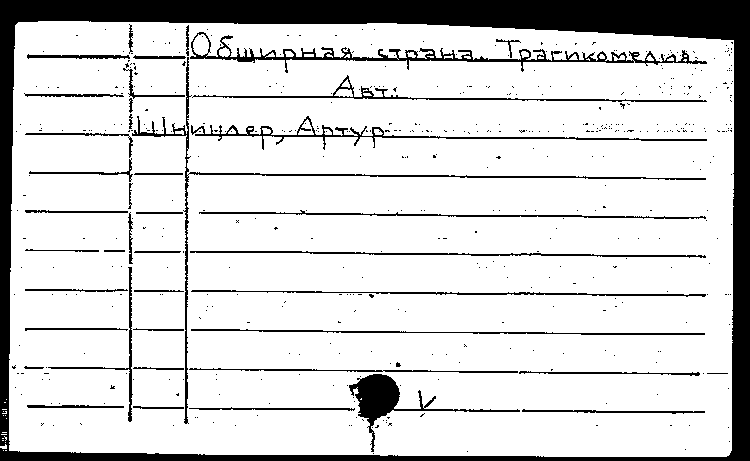 Обширная страна. Трагикомедия.
Авт.:
Шницлер, Артур
V